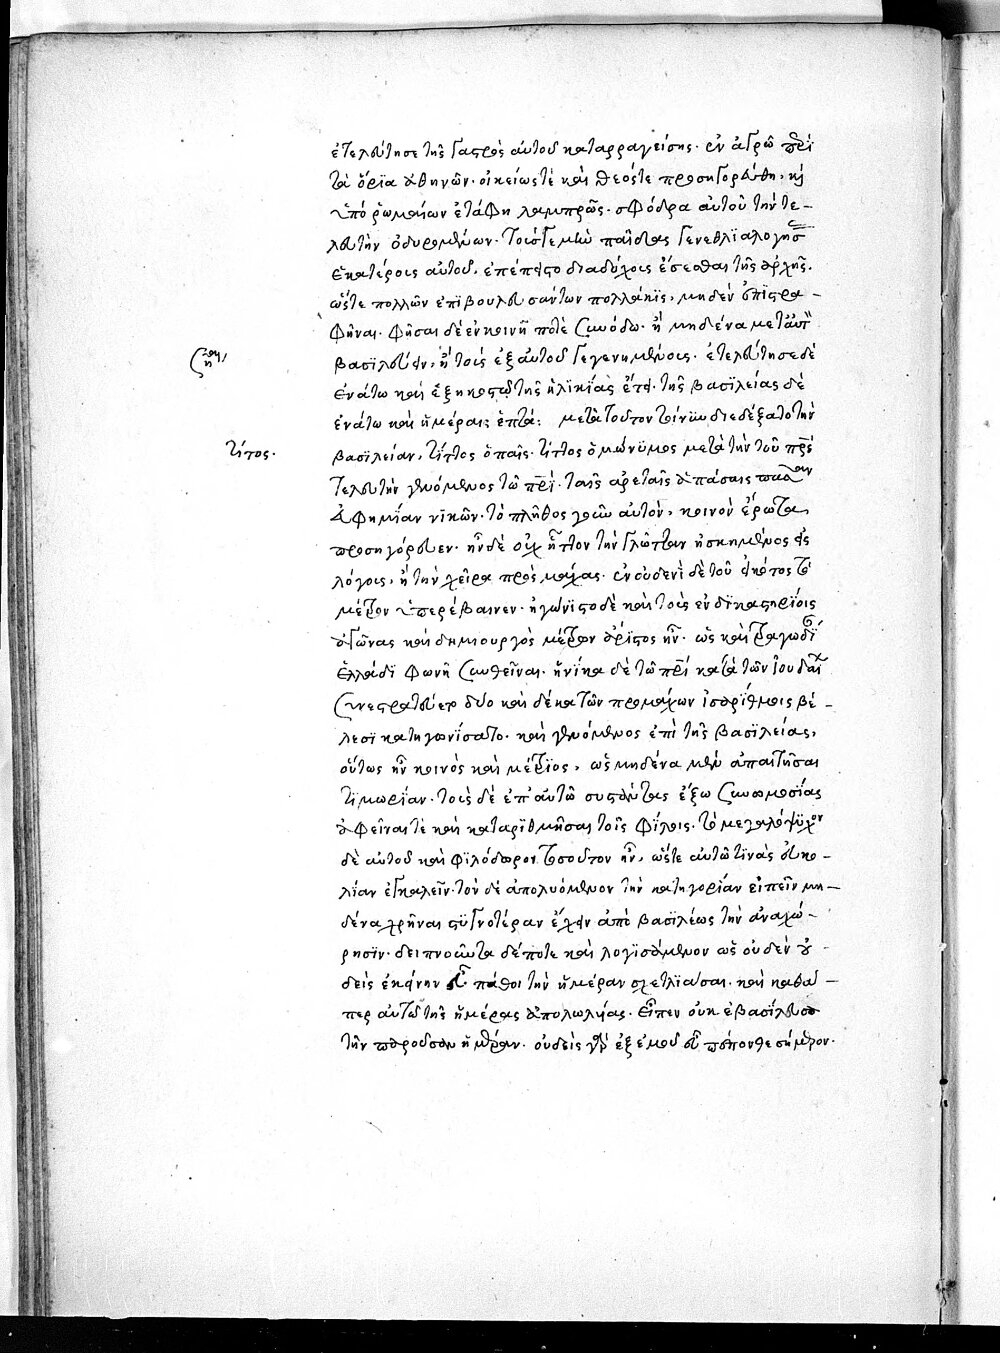 ἐτελεύτησε τῆς γαστρὸς αὐτοῦ καταρραγείσης. ἐν ἀγρῷ περὶ
τὰ ὅρια ἀθηνῶν. οἰκείως τὲ καὶ θεός τε προσηγορεύθη, καὶ
ὑπὸ ῥωμαίων ἐτάφη λαμπρῶς. σφόδρα αὐτοῦ τὴν τε-
λευτὴν ὀδυρομένων. τοὺς γεμὴν παῖδας γενεθλιαλογήσας
ἑκατέροις αὐτοῦ, ἐπέπειστο διαδόχοις ἔσεσθαι τῆς ἀρχῆς.
ὥστε πολλῶν ἐπιβουλευσάντων πολλάκις, μηδὲν ἐπιστρα-
φῆναι. φῆσαι δὲ ἐν κοινῇ ποτὲ συνόδω. ἢ μηδένα μετ αὐτὸν
βασιλεύειν, ἢ τοὺς ἐξ αὐτοῦ γεγενημένους. ἐτελεύτησε δὲ
ἐνάτω καὶ ἑξηκοστῶ τῆς ἡλικίας ἔτει. τῆς βασιλείας δὲ
ἐνάτω καὶ ἡμέραις ἑπτά: μετὰ τοῦτον τοίνυν διεδέξατο τὴν
τίτος.
βασιλείαν, τίτος ὁ παῖς. τίτος ὁμώνυμος μετὰ τὴν τοῦ πρς
τελευτὴν γενόμενος τῶ πρὶ. ταῖς ἀρεταῖς ἁπάσαις πᾶσαν
εὐφημίαν νικῶν. τὸ πλῆθος γοῦν αὐτὸν, κοινὸν ἔρωτα,
προσηγόρευεν. ἦν δὲ οὐχ ἧττον τὴν γλῶτταν ἠσκημένος εἰς
λόγους, ἢ τὴν χεῖρα πρὸς μάχας. ἐν οὐδενὶ δὲ τοῦ εἰκότος τὸ
μέτρον ὑπερέβαινεν. ἠγωνίζετο δὲ καὶ τοὺς ἐν δικαστηρίοις
ἀγῶνας καὶ δημιουργὸς μέτρων ἄριστος ἦν. ὡς καὶ τραγωδίας
ἑλλάδι φωνῇ συνθεῖναι. ἡνίκα δὲ τῶ πρὶ κατὰ τῶν ἰουδαίων
συνεστρατεύετο δύο καὶ δέκα τῶν προμάχων ἰσαρίθμοις βέ-
λεσι κατηγωνίσατο. καὶ γενόμενος ἐπὶ τῆς βασιλείας,
οὕτως ἦν κοινὸς καὶ μέτριος, ὡς μηδένα μὲν ἀπαιτῆσαι
τιμωρίαν. τοὺς δὲ ἐπ αὐτῶ συστάντας ἔξω συνωμοσίας
ἀφεῖναι τὲ καὶ καταριθμῆσαι τοῖς φίλοις. τὸ μεγαλόψυχον
δὲ αὐτοῦ καὶ φιλόδωρον τοσοῦτον ἦν, ὥστε αὐτῶ τινὰς εὐκο-
λίαν ἐγκαλεῖν. τὸν δὲ ἀπολυόμενον τὴν κατηγορίαν εἰπεῖν μη-
δένα χρῆναι στυγνοτέραν ἔχειν ἀπὸ βασιλέως τὴν ἀναχώ-
ρησιν. δειπνοῦντα δέποτε καὶ λογισάμενον ὡς οὐδὲν οὐ-
δεὶς ἐκείνην εὖ πάθοι τὴν ἡμέραν σχετλιάσαι. καὶ καθά-
περ αὐτῶ τῆς ἡμέρας ἀπολωλυίας. εἶπεν οὐκ ἐβασίλευσα
τὴν παροῦσαν ἡμέραν. οὐδεὶς γὰρ ἐξ ἐμοῦ εὖ πέπονθε σήμερον.